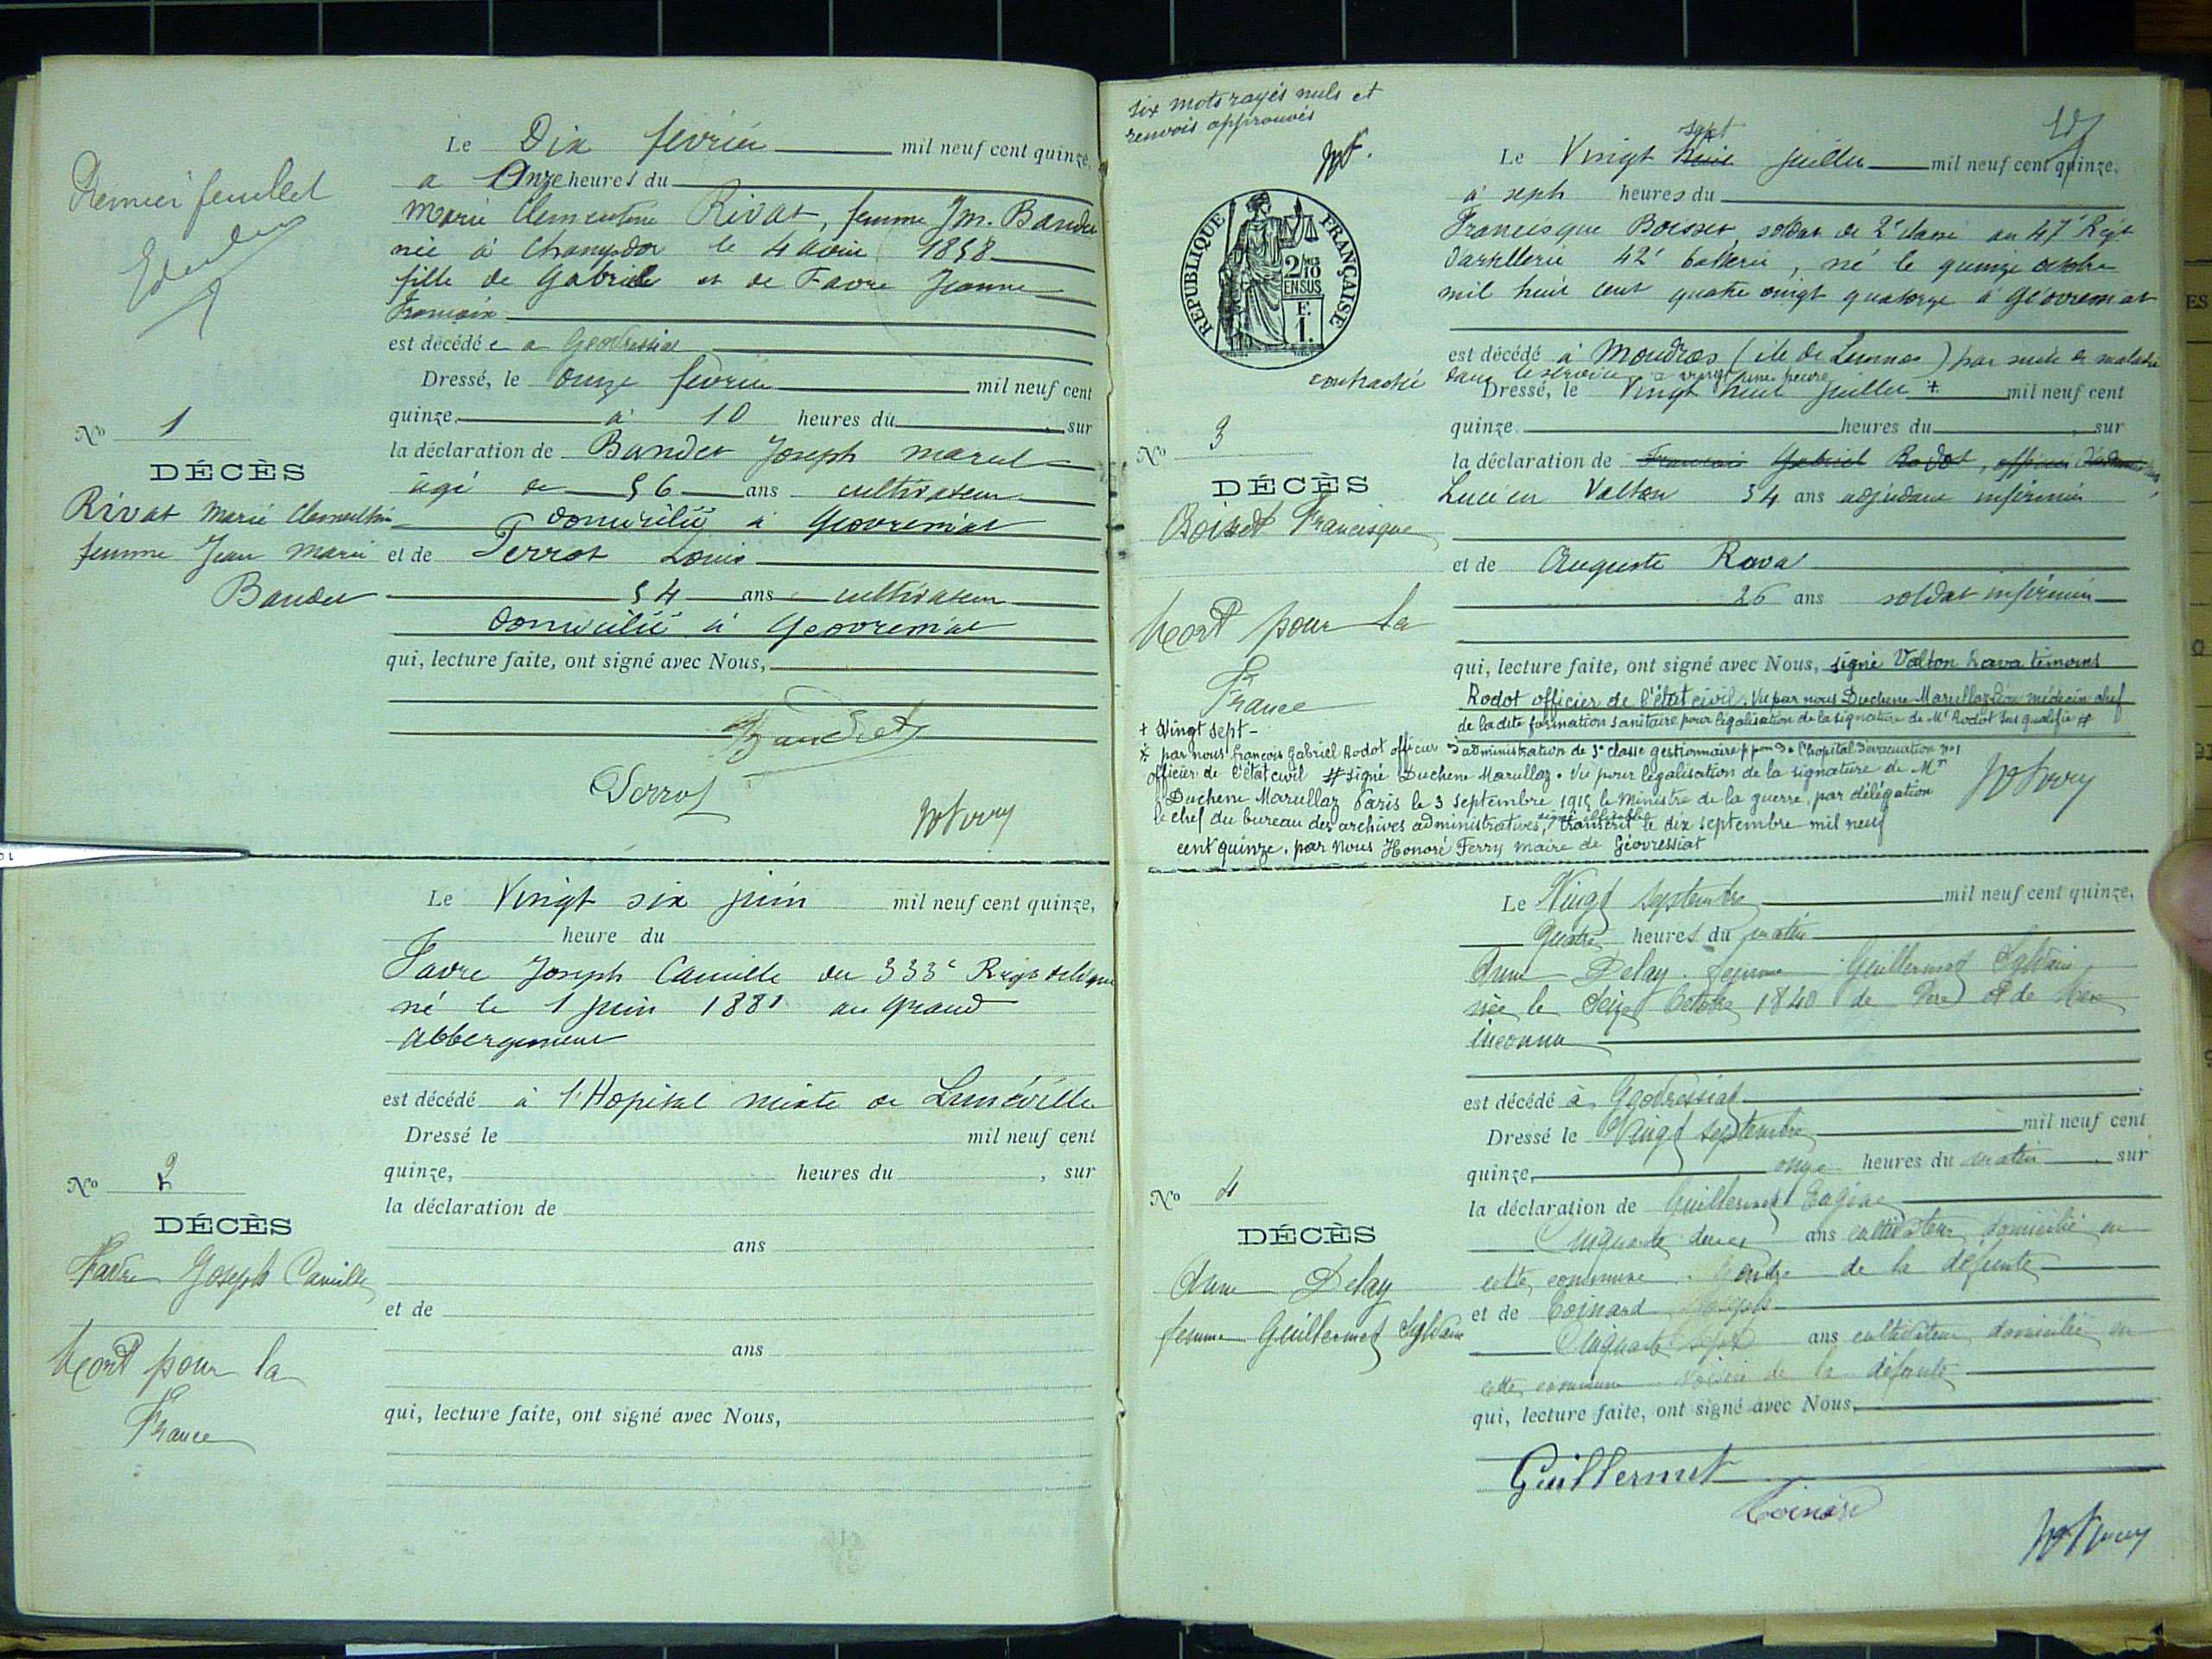 Premier feuillet
Le Dix février mil neuf cent quinze,
a Onze heures du
Marie Clementine Rivat, femme Jm. Baudet
née à Champdor le 4 aout 1858
fille de Gabriel et de Favre Jeanne
est décédée a Geovressiat
Dressé, le onze février mil neuf cent
quinze, à 10 heures du , sur
la déclaration de Baudet Joseph marcel
âgé de 56 ans cultivateur
domicilié à Geovressiat
et de Perrot Louis
54 ans cultivateur
domicilié à Geovressiat
qui, lecture faite, ont signé avec Nous,
Baudet
Perrot
HFerry
No 1
DÉCÈS
Rivat Marie Clementine
femme Jean Marie
Baudet
Le Vingt six juin mil neuf cent quinze,
heure du
Favre Joseph Camille du 333e Regt de ligne
né le 1 juin 1881 au grand
Abbergement
est décédé à l'Hopital mixte de Lunéville
Dressé le mil neuf cent
quinze, heures du , sur
la déclaration de
ans
et de
ans
qui, lecture faite, ont signé avec Nous,
No 2
DÉCÈS
Favre Joseph Camille
Mort pour la
France
six mots rayés nuls et
renvois approuvés
HF.
RÉPUBLIQUE FRANÇAISE
2/10
EN SUS
F.
1.
Le Vingt sept huit juillet mil neuf cent quinze.
à sept heures du
Francisque Boisset, soldat de 2e classe au 47e Regt
d'artillerie 42e batterie, né le quinze octobre
mil huit cent quatre vingt quatorze à Géovressiat
est décédé à Moudros (ile de Lemnos) par suite de maladie
contractée dans le service a vingt une heure
Dressé, le Vingt huit juillet + mil neuf cent
quinze. heures du , sur
la déclaration de Francois Gabriel Rodot, officier
Lucien Valton 34 ans adjudant infirmier
et de Auguste Rava
26 ans soldat infirmier
qui, lecture faite, ont signé avec Nous, signé Valton Rava témoins
Rodot officier de l'état civil. Vu par nous Duchene Marullaz Léon médecin chef
de la dite formation sanitaire pour légalisation de la signature de Mr Rodot sus qualifié #
No 3
DÉCÈS
Boisset Francisque
Mort pour la
France
+ Vingt sept -
par nous François Gabriel Rodot officier d'administration de 3e classe gestionnaire ppon de l'hopital d'évacuation no 1
officier de l'état civil # signé Duchene Marullaz. Vu pour légalisation de la signature de Mr
Duchene Marullaz Paris le 3 septembre 1915 le Ministre de la guerre, par délégation
le chef du bureau des archives administratives, signé illisible transcrit le dix septembre mil neuf
cent quinze. par nous Honoré Ferry maire de Géovressiat
HFerry
Le Vingt septembre mil neuf cent quinze,
Quatre heures du matin
Anne Delay femme Guillermet Sylvain
née le Seize Octobre 1840 de Père et de Mère
inconnu
est décédé à Géovressiat
Dressé le Vingt septembre mil neuf cent
quinze, onze heures du matin , sur
la déclaration de Guillermet Eugène
Cinquante deux ans cultivateur domicilié en
cette commune Gendre de la défunte
et de Coinard Joseph
Cinquante sept ans cultivateur domicilié en
cette commune voisin de la défunte
qui, lecture faite, ont signé avec Nous,
Guillermet
Coinard
HFerry
No 4
DÉCÈS
Anne Delay
femme Guillermet Sylvain